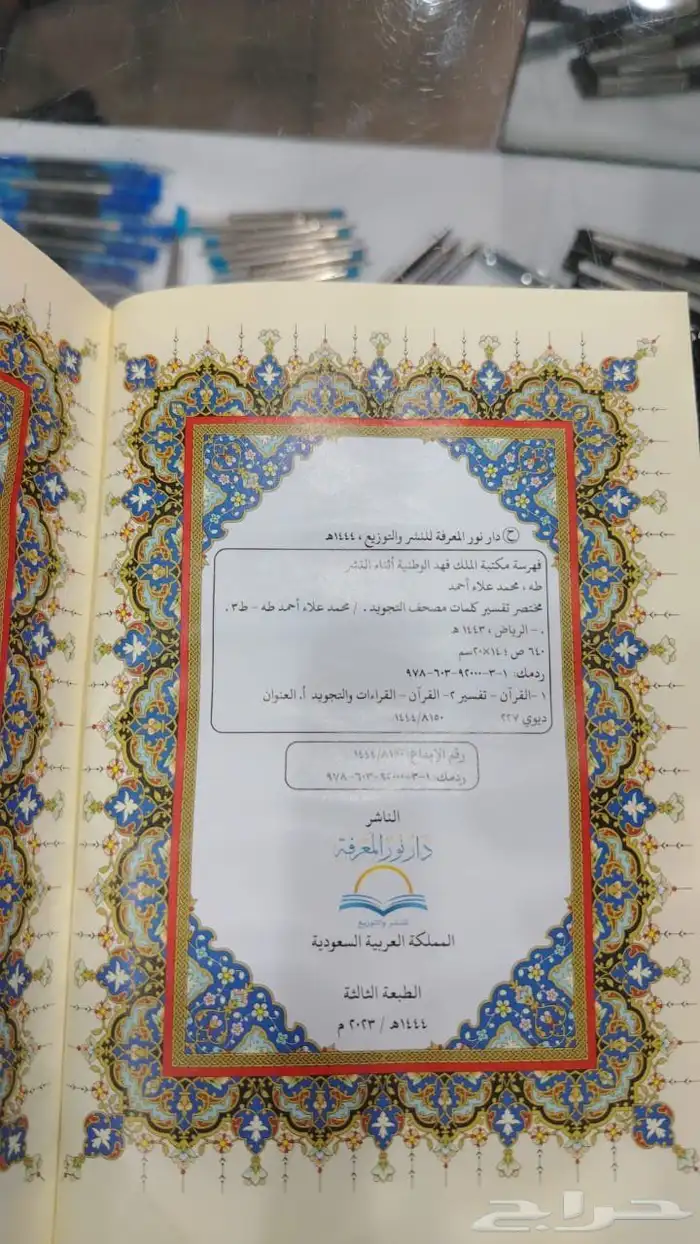 ح دار نور المعرفة للنشر والتوزيع ، ١٤٤٤هـ
فهرسة مكتبة الملك فهد الوطنية أثناء النشر
طه ، محمد علاء أحمد
مختصر تفسير كلمات مصحف التجويد . / محمد علاء أحمد طه - ط٣ .
. - الرياض ، ١٤٤٣ هـ
٦٤٠ ص ؛ ١٤×٢٠سم
ردمك: ١-٣-٩٢٠٠٠-٦٠٣-٩٧٨
١-القرآن - تفسير ٢- القرآن - القراءات والتجويد أ. العنوان
ديوي ٢٢٧ ١٤٤٤/٨١٥٠
رقم الإيداع: ١٤٤٤/٨١٥٠
ردمك: ١-٣-٩٢٠٠٠-٦٠٣-٩٧٨
الناشر
دار نور المعرفة
للنشر والتوزيع
المملكة العربية السعودية
الطبعة الثالثة
١٤٤٤هـ / ٢٠٢٣ م
حراج